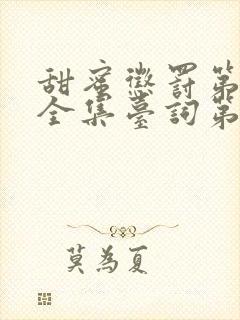 甜蜜懲罰第
全集臺詞第
莫為夏